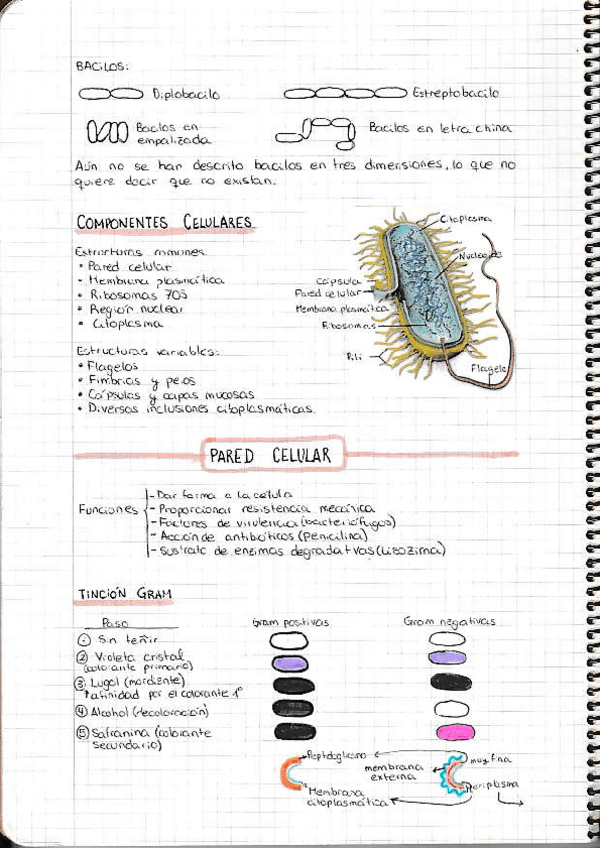 BACILOS:
Diplobacilo
Estreptobacilo
Bacilos en
empalizada
Bacilos en letra china
Aún no se han descrito bacilos en tres dimensiones, lo que no
quiere decir que no existan.
COMPONENTES CELULARES
Estructuras comunes:
• Pared celular
• Membrana plasmática
• Ribosomas 70S
• Región nuclear
• Citoplasma
Estructuras variables:
• Flagelos
• Fimbrias y pelos
• Cápsulas y capas mucosas
• Diversas inclusiones citoplasmáticas.
Citoplasma
Nucleoide
Cápsula
Pared celular
Membrana plasmática
Ribosomas
Pili
Flagelo
PARED CELULAR
Funciones
- Dar forma a la célula
- Proporcionar resistencia mecánica
- Factores de virulencia (bacteriófugos)
- Acción de antibióticos (Penicilina)
- Sustrato de enzimas degradativas (Lisozima)
TINCIÓN GRAM
Paso
Gram positivas
Gram negativas
① Sin teñir
② Violeta cristal
(colorante primario)
③ Lugol (mordiente)
↑afinidad por el colorante 1º
④ Alcohol (decoloración)
⑤ Safranina (colorante
secundario)
Peptidoglicano
muy fina
membrana
externa
Periplasma
Membrana
citoplasmática